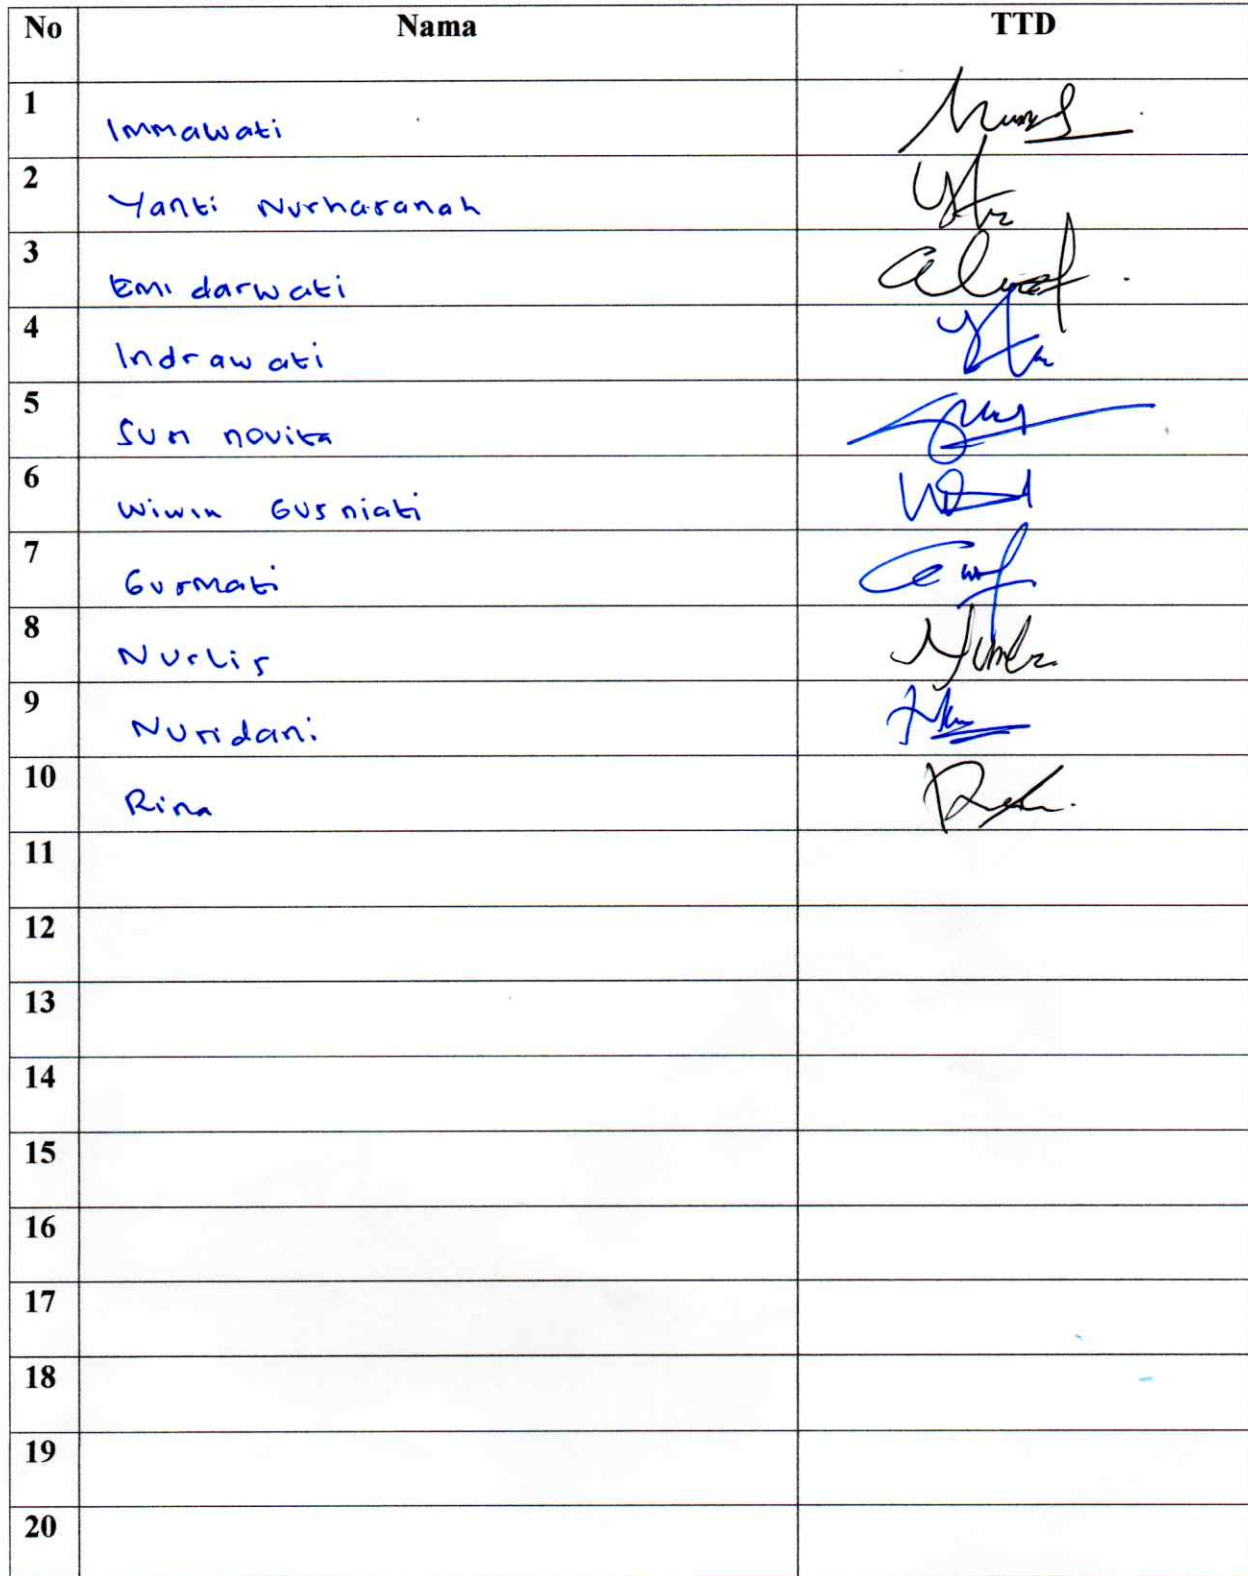 No Nama TTD
1 Immawati
2 Yanti Nurhasanah
3 Emi darwati
4 Indrawati
5 Sum novita
6 Wiwin Gusniati
7 Gusmati
8 Nurlis
9 Nuridani
10 Rina
11
12
13
14
15
16
17
18
19
20